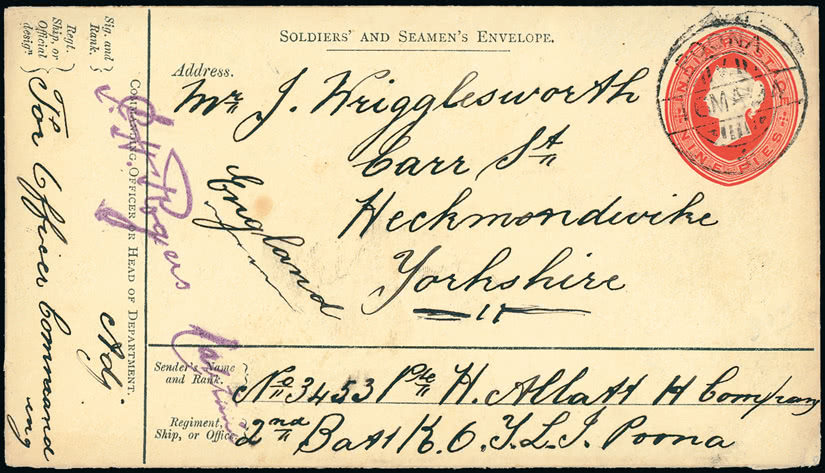 SOLDIERS' AND SEAMEN'S ENVELOPE.
Address.
Mr J. Wrigglesworth
Carr St
Heckmondwike
Yorkshire
England
Sender's Name and Rank. } No 3453 Pte H. Allatt H Company
Regiment, Ship, or Office } 2nd Batt K.O.Y.L.I. Poona
Sig. and Rank.
Rogers
Adj
COMMANDING OFFICER OR HEAD OF DEPARTMENT.
Regt. Ship, or Official design
For Officer Commanding
POONA
MA
NINE PIES